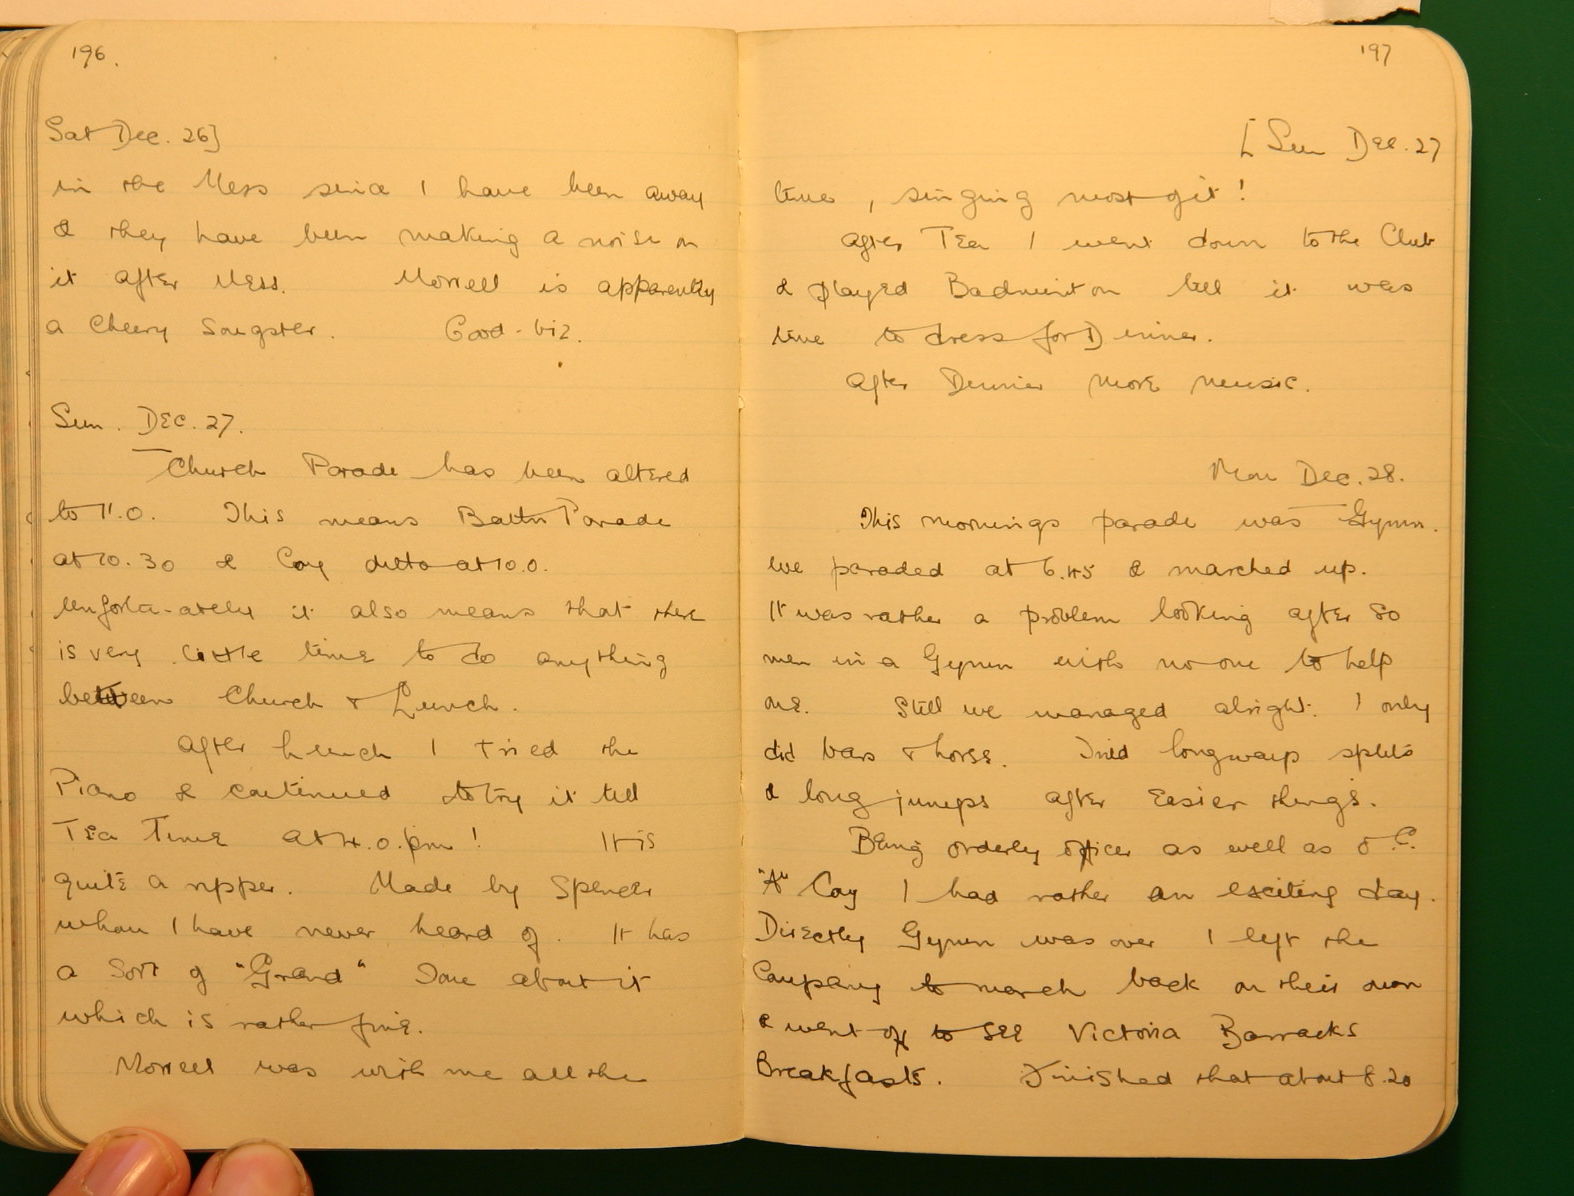 196.
Sat Dec. 26]
in the Mess since I have been away
& they have been making a noise on
it after Mess. Morrell is apparently
a cheery songster. Good-biz.
Sun. Dec. 27.
Church Parade has been altered
to 11.0. This means Battn Parade
at 10.30 & Coy ditto at 10.0.
Unfortu-ately it also means that there
is very little time to do anything
between Church & Lunch.
After Lunch I tried the
Piano & continued to try it till
Tea Time at 4.0.pm! It is
quite a ripper. Made by Spencer
whom I have never heard of. It has
a sort of "Grand" Tone about it
which is rather fine.
Morrell was with me all the
197
[Sun Dec. 27
time, singing most of it!
After Tea I went down to the Club
& played Badminton till it was
time to dress for Dinner.
After Dinner more music.
Mon Dec. 28.
This mornings parade was Gymn.
We paraded at 6.45 & marched up.
It was rather a problem looking after 80
men in a Gymn with no one to help
one. Still we managed alright. I only
did bars & horse. Tried longways splits
& long jumps after easier things.
Being orderly officer as well as O.C.
"A" Coy I had rather an exciting day.
Directly Gymn was over I left the
Company to march back on their own
& went off to see Victoria Barracks
Breakfasts. Finished that about 8.20